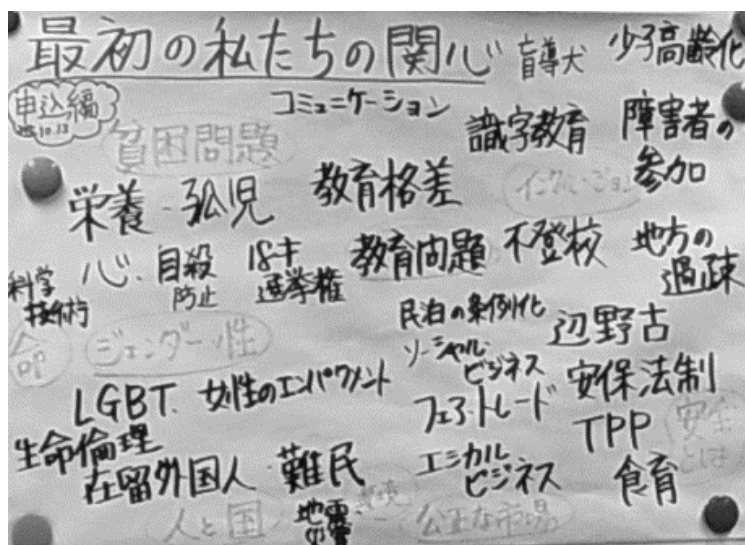 最初の私たちの関心
盲導犬
少子高齢化
申込編
コミュニケーション
貧困問題
識字教育
障害者の
参加
栄養
孤児
教育格差
インクルージョン
心
自殺
防止
18才
選挙権
教育問題
不登校
地方の
過疎
科学
技術
命
ジェンダー・性
民泊の条例化
辺野古
ソーシャル
ビジネス
安保法制
LGBT
女性のエンパワメント
フェアトレード
TPP
安全
とは
生命倫理
在留外国人
難民
エシカル
ビジネス
食育
人と国
地震
災害
公正な市場